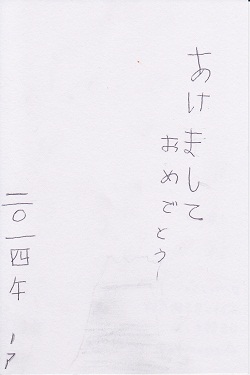 あけまして
おめでとうー
二〇一四年 ーア